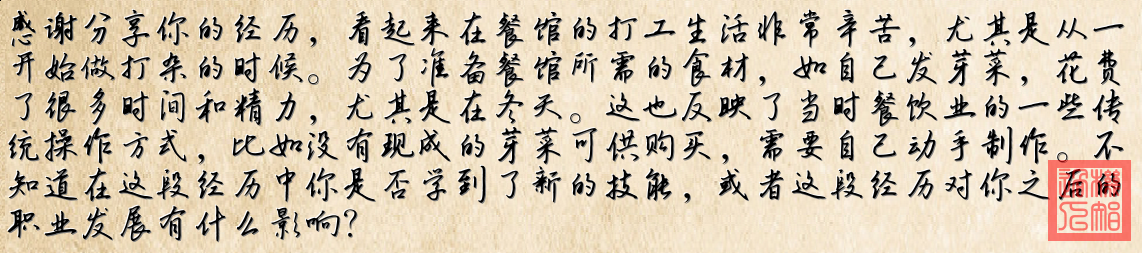 感谢分享你的经历，看起来在餐馆的打工生活非常辛苦，尤其是从一
开始做打杂的时候。为了准备餐馆所需的食材，如自己发芽菜，花费
了很多时间和精力，尤其是在冬天。这也反映了当时餐饮业的一些传
统操作方式，比如没有现成的芽菜可供购买，需要自己动手制作。不
知道在这段经历中你是否学到了新的技能，或者这段经历对你之后的
职业发展有什么影响？